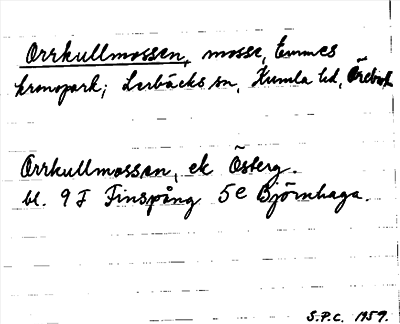 Orrkullmossen, mosse, Emmes
kronopark; Lerbäcks sn, Kumla hd, Örebro l.
Orrkullmossen, ek Östberg.
bl. 9 F Finspång 5 e Björnhaga.
S.P.C. 1959.